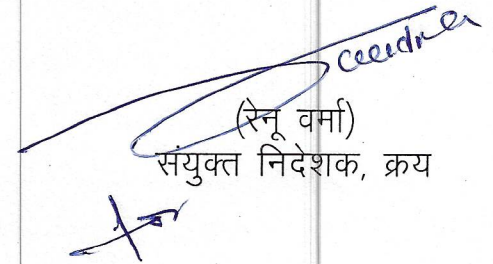 (रेनू वर्मा)
संयुक्त निदेशक, क्रय